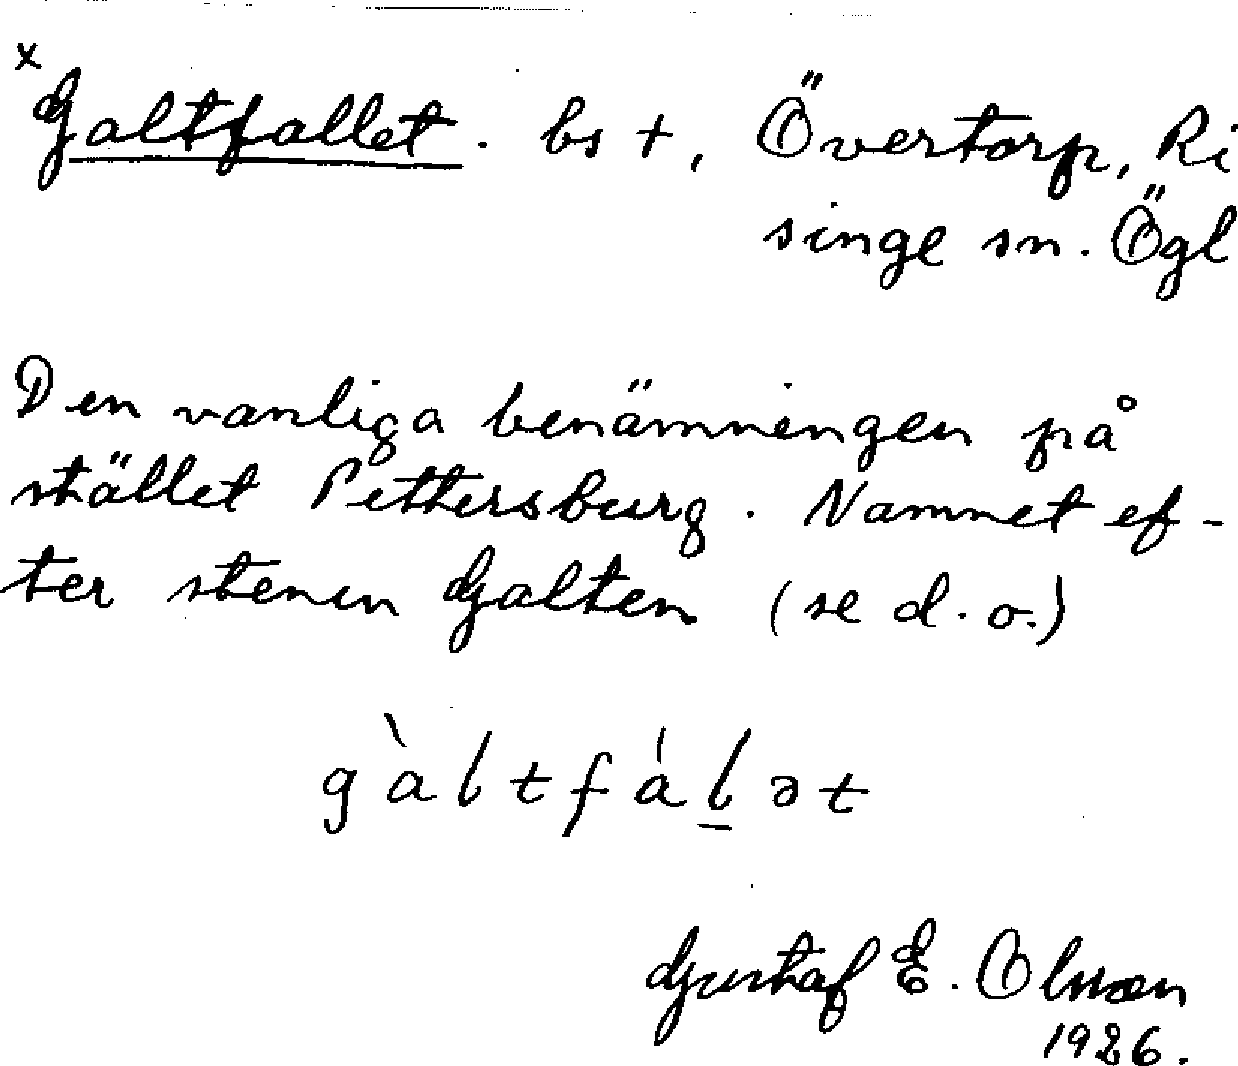 x
Galtfallet. bs +, Övertorp, Ri
singe sn. Ögl
Den vanliga benämningen på
stället Pettersburg. Namnet ef-
ter stenen Galten (se d. o.)
g à l t f á l̲ ə t
Gustaf E. Olsson
1926.